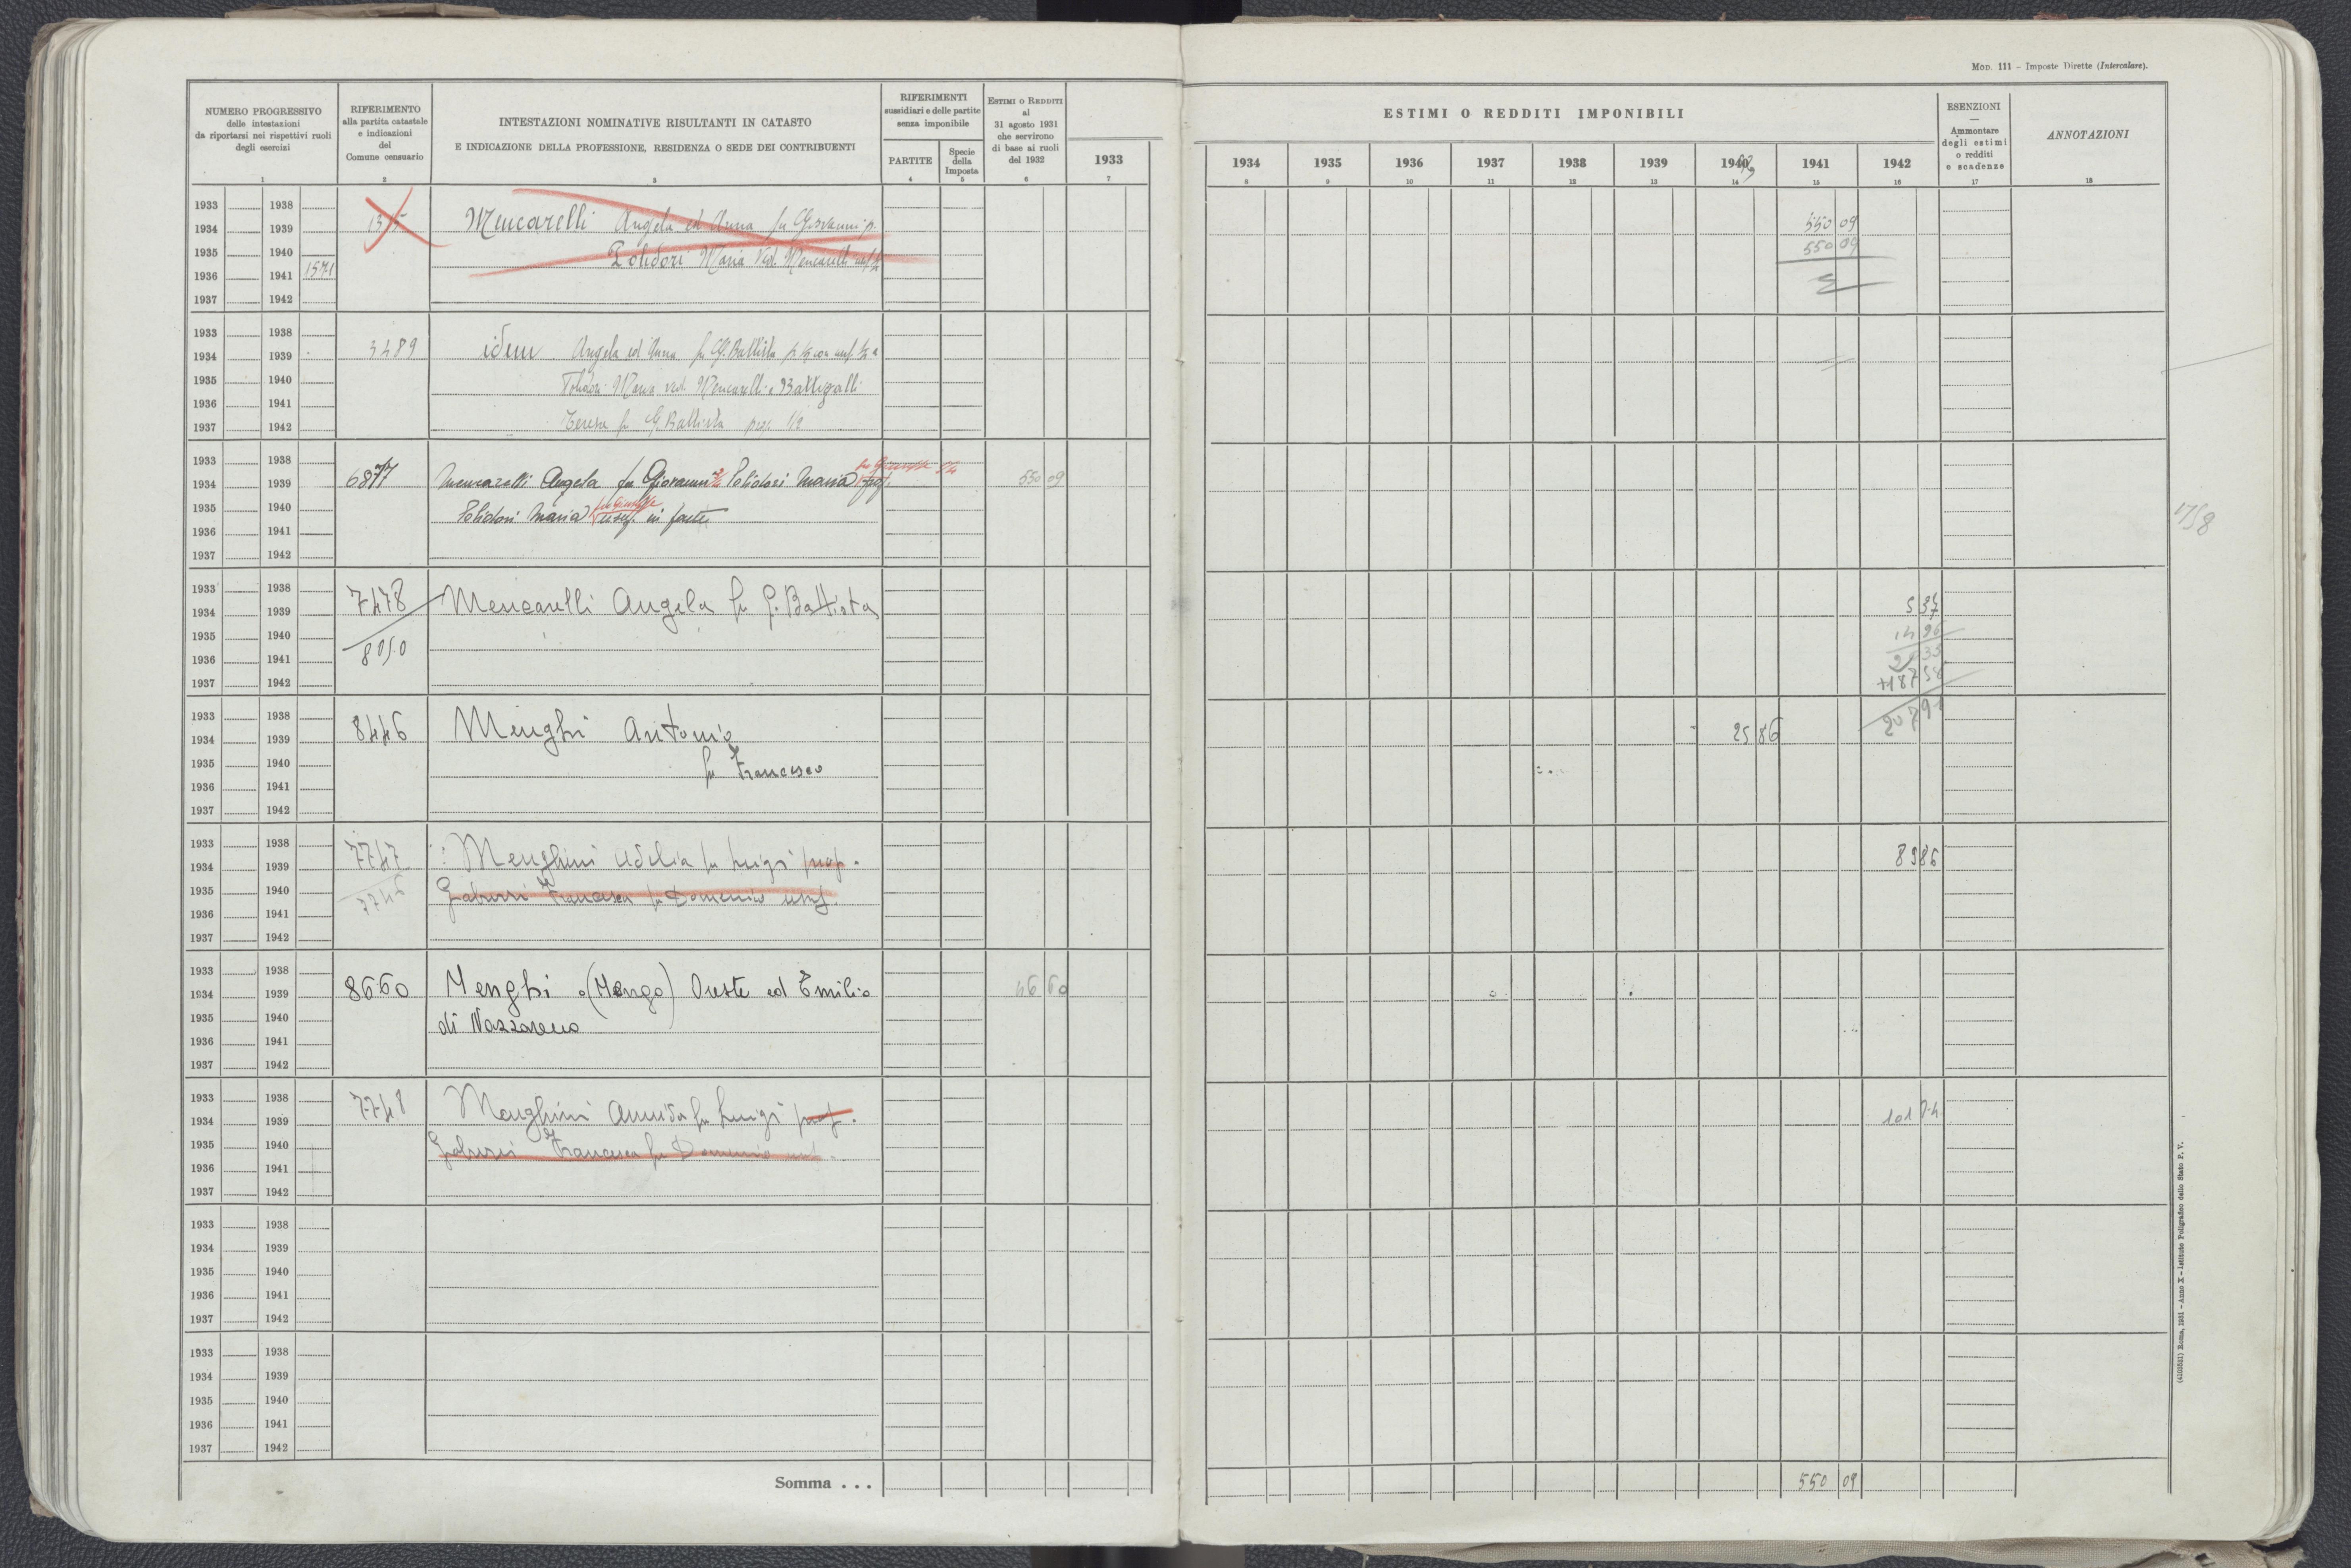 Mod. 111 - Imposte Dirette (Intercalare).
NUMERO PROGRESSIVO
delle intestazioni
da riportarsi nei rispettivi ruoli
degli esercizi
1
RIFERIMENTO
alla partita catastale
e indicazioni
del
Comune censuario
2
INTESTAZIONI NOMINATIVE RISULTANTI IN CATASTO
E INDICAZIONE DELLA PROFESSIONE, RESIDENZA O SEDE DEI CONTRIBUENTI
3
RIFERIMENTI
sussidiari e delle partite
senza imponibile
PARTITE
4
Specie
della
Imposta
5
ESTIMI O REDDITI
al
31 agosto 1931
che servirono
di base ai ruoli
del 1932
6
1933
7
ESTIMI O REDDITI IMPONIBILI
1934 1935 1936 1937 1938 1939 1940 1941 1942
8 9 10 11 12 13 14 15 16
ESENZIONI
—
Ammontare
degli estimi
o redditi
e scadenze
17
ANNOTAZIONI
18
1933 1938
1934 1939 Mencarelli Angela ed Anna fu Giovanni p. 550 09
1935 1940 Polidori Maria Ved. Mencarelli 550 09
1936 1941 1571
1937 1942
1933 1938
1934 1939 3489 idem Angela ed Anna fu G. Battista
1935 1940 Polidori Maria ved. Mencarelli e Battigalli
1936 1941
1937 1942 Teresa fu G. Battista prop. 1/2
1933 1938
1934 1939 6877 Mencarelli Angela fu Giovanni Polidori Maria prop. 550 09
1935 1940 Polidori Maria fu Giuseppe usuf. in parte
1936 1941
1937 1942
1758
1933 1938
1934 1939 7478 Mencarelli Angela fu G. Battista 5 37
1935 1940 14 96
1936 1941 8050
1937 1942 +187 58
1933 1938 207 91
1934 1939 8446 Menghi Antonio 25 86
1935 1940 fu Francesco
1936 1941
1937 1942
1933 1938
1934 1939 7747 Menghini Adelia fu Luigi prop. 89 86
1935 1940 7746 Gaburri Francesca fu Domenico usuf.
1936 1941
1937 1942
1933 1938
1934 1939 8660 Menghi o (Mengo) Oreste ed Emilio 46 60
1935 1940 di Nazzareno
1936 1941
1937 1942
1933 1938
1934 1939 7748 Menghini Armida fu Luigi prop. 101
1935 1940 Gaburri Francesca fu Domenico usuf.
1936 1941
1937 1942
1933 1938
1934 1939
1935 1940
1936 1941
1937 1942
1933 1938
1934 1939
1935 1940
1936 1941
1937 1942
Somma . . . 550 09
(4100531) Roma, 1931 - Anno X - Istituto Poligrafico dello Stato P. V.